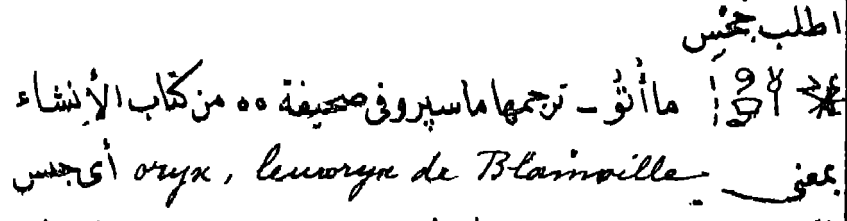 اطلب جحس
ماأُتُو ـ ترجمها ماسپرو فى صحيفة ٥٥ من كتاب الأنشاء
بمعنى oryx, leucoryx de Blainville أى جنس